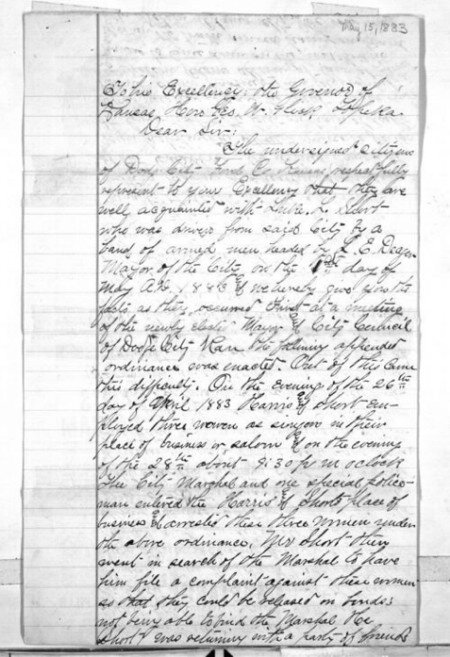 May 15, 1883
To his Excellency: the Governor of
Kansas Hon. Geo. W. Glick Topeka.
Dear Sir:
The undersigned citizens
of Dodge City Ford Co. Kansas respectfully
represent to your Excellency that they are
well acquainted with Luke L. Short
who was driven from said City by a
band of armed men headed by L. E. Deger
Mayor of the City on the day of
May A.D. 1883 & we hereby give you the
facts as they occurred First at a meeting
of the newly elected Mayor & City Council
of Dodge City Kan. the following appended
ordinance was enacted. Out of this came
this difficulty. On the evening of the 26th
day of April 1883 Harris & Short em-
ployed three women as singers in their
place of business or saloon & on the evening
of the 28th about 9:30 p m oclock
the City Marshal and one special police-
man entered the Harris & Shorts place of
business & arrested these three women under
the above ordinance, Mr Short then
went in search of the Marshal to have
him file a complaint against these women
so that they could be released on bonds
not being able to find the Marshal Mr
Short was returning with a party of friends